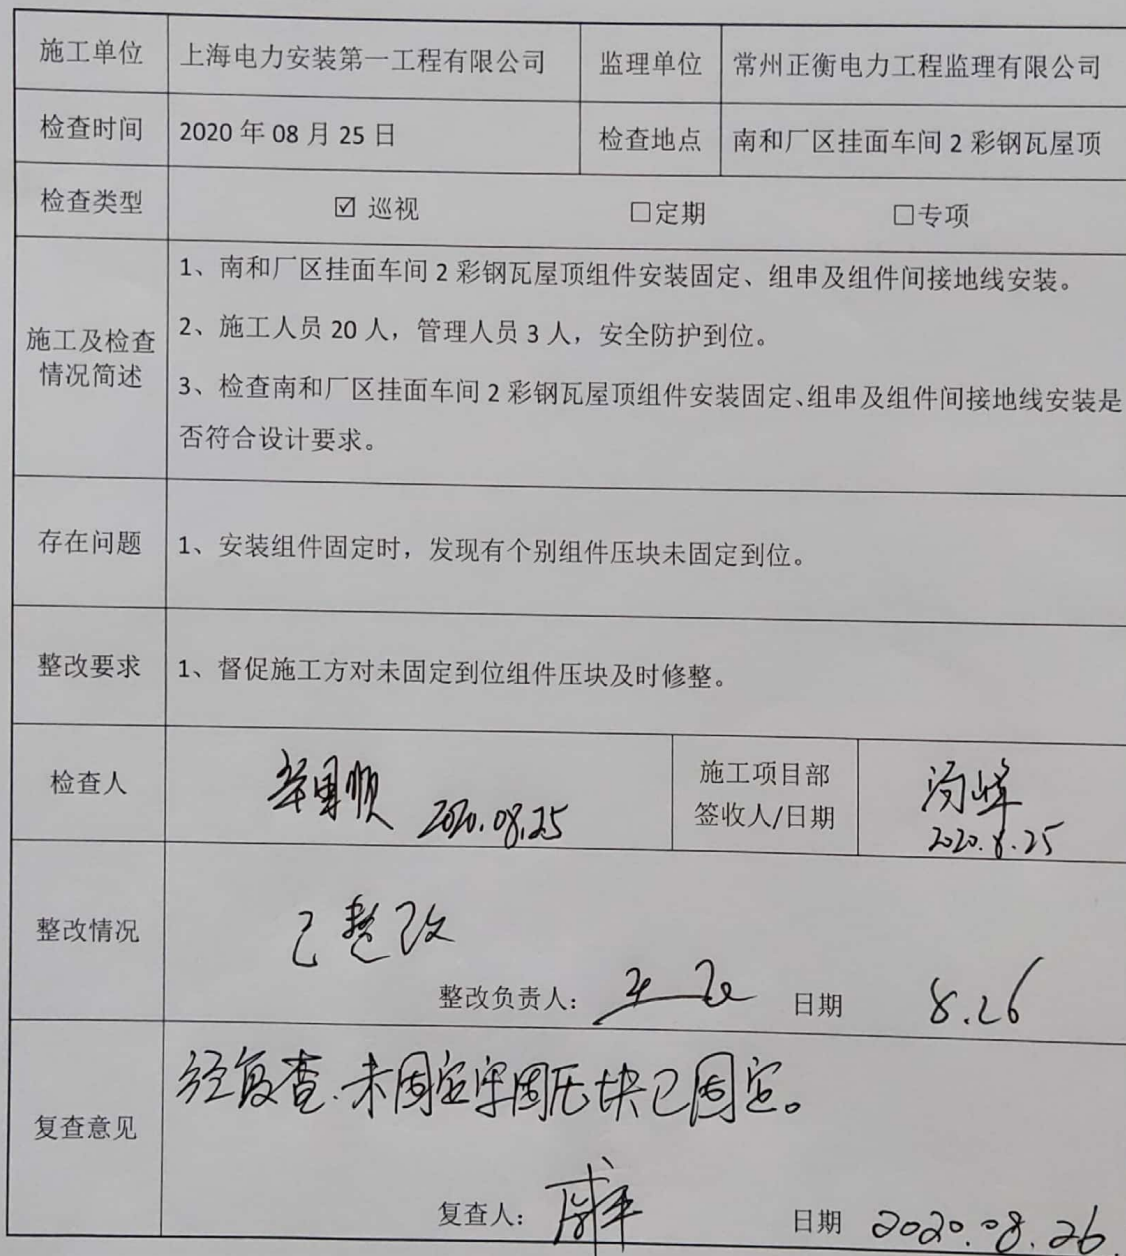 施工单位 上海电力安装第一工程有限公司 监理单位 常州正衡电力工程监理有限公司
检查时间 2020 年 08 月 25 日 检查地点 南和厂区挂面车间 2 彩钢瓦屋顶
检查类型 ☑ 巡视 □定期 □专项
施工及检查
情况简述
1、南和厂区挂面车间 2 彩钢瓦屋顶组件安装固定、组串及组件间接地线安装。
2、施工人员 20 人，管理人员 3 人，安全防护到位。
3、检查南和厂区挂面车间 2 彩钢瓦屋顶组件安装固定、组串及组件间接地线安装是
否符合设计要求。
存在问题 1、安装组件固定时，发现有个别组件压块未固定到位。
整改要求 1、督促施工方对未固定到位组件压块及时修整。
检查人 2020.08.25
施工项目部
签收人/日期
2020.8.25
整改情况 已整改
整改负责人： 日期 8.26
复查意见 经复查.未固定牢固压块已固定。
复查人： 日期 2020.08.26.